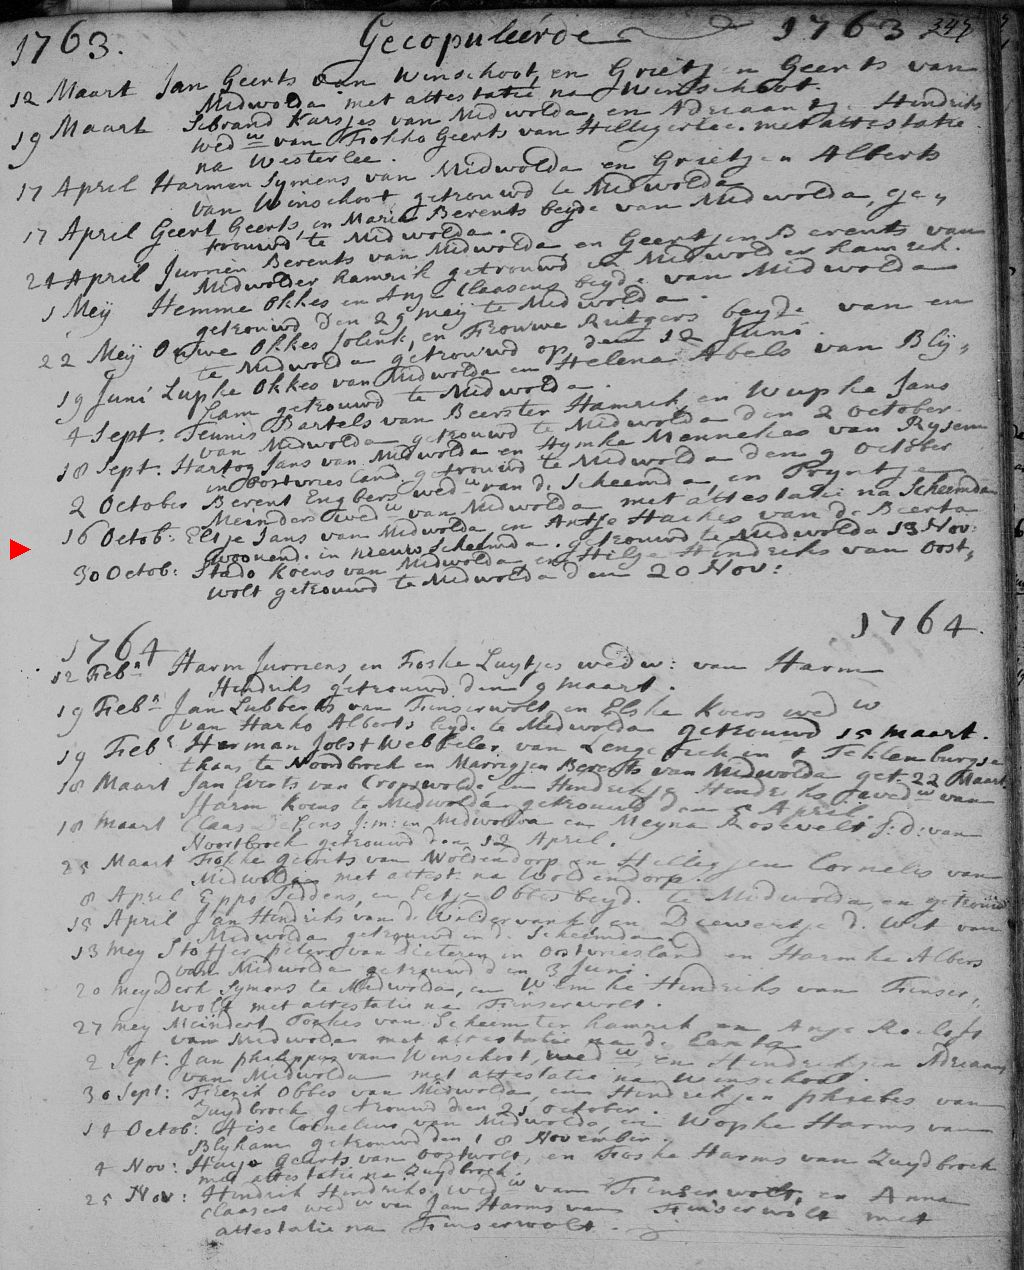 1763. Gecopuleerde 1763 347
12 Maart Jan Geerts van Winschoot, en Grietjen Geerts van
Midwolda met attestatie na Winschoot.
19 Maart Sibrand Karsjes van Midwolda en Adriaantje Hindriks
wedw van Fokko Geerts van Hilligerlee. met attestatie
na Westerlee.
17 April Harmen Symens van Midwolda en Grietjen Alberts
van Winschoot getrouwd te Midwolda
17 April Geert Geerts, en Maria Berents beyde van Midwolda, ge„
trouwd te Midwolda.
24 April Jurrien Berents van Midwolda en Geertjen Berents van
Midwolder hamrik getrouwd in Midwolder hamrik.
1 Meij Hemme Okkes en Anje Claasens beyde van Midwolda
getrouwd den 29 meij te Midwolda.
22 Meij Ouwe Okkes Jolink, en Frouwe Rutgers beyde van en
te Midwolda getrouwd op den 12 Juni.
19 Juni Lupke Okkes van Midwolda en Helena Abels van Blij„
ham getrouwd te Midwolda.
4 Sept: Teunis Bartels van Beerster Hamrik en Wupke Jans
van Midwolda getrouwd te Midwolda den 2 October.
18 Sept. Hartog Jans van Midwolda en Hymke Mennekes van Rysum
in Oostvriesland getrouwd te Midwolda den 9 October
2 October Berent Engberts wedw van de Scheemda, en Pryntje
Meinders wedw van Midwolda met attestatie na Scheemda
16 Octob: Eltje Jans van Midwolda en Antje Haikes van de Beerta
woonende in nieuw Scheemda. getrouwd te Midwolda 13 Nov:
30 Octob: Stado Koens van Midwolda en Hilje Hindriks van Oost„
wolt getrouwd te Midwolda den 20 Nov:
1764 1764.
12 Febr Harm Jurriens en Foske Luytjes wedw: van Harm
Hindriks getrouwd den 9 maart.
19 Febr Jan Lubberts van Finserwolt en Elske Koers wedw
van Harko Alberts beyde te Midwolda getrouwd 15 maart.
19 Febr Herman Jobst Webbeler van Lengerick in 't Teklenburgse
thans te Noordbroek en Marregjen Berents van Midwolda get. 22 Maart.
18 Maart Jan Everts van Cropswolde en Hindrikje Hindriks wedw van
Harm Koens te Midwolda getrouwd den 5 April.
18 maart Claas J:m: in Midwolda en Meyna Rosevelt J:D: van
Noortbroek getrouwd den 12 April.
25 Maart Fokke Geerts van Woldendorp en Hillegjen Cornelis van
Midwolda met attest. na Woldendorp.
8 April Eppo Tiddens, en Eetje Obbes beyde te Midwolda en getrouwd
15 April Jan Hindriks van de Wildervank en Diewertje d. Wit van
Midwolda getrouwd in d. Scheemda
13 mey Stoffer Peters van Dieteren in Oostvriesland en Harmke Albers
van Midwolda getrouwd den 3 Juni.
20 mey Derk Symens te Midwolda, en Wemke Hendriks van Finser„
wolt met attestatie na Finserwolt.
27 mey Meindert Fookes van Scheemter hamrik en Anje Roelofs
van Midwolda met attestatie na de Eexta
2 Sept: Jan Philippus van Winschoot, wedw en Hindrikjen Adriaans
van Midwolda met attestatie na Winschoot
30 Sept: Frerik Obbes van Midwolda, en Hindrikjen Phoebes van
Zuydbroek getrouwd den 21 october.
14 Octob: Heise Cornelius van Midwolda en Wopke Harms van
Blyham getrouwd den 18 November.
4 Nov: Harje Geerts van Oostwolt, en Foske Harms van Zuydbroek
met attestatie na Zuydbroek.
25 Nov: Hindrik Hindriks wedw van Finserwolt, en Anna
Claasens wedw van Jan Harms van Finserwolt met
attestatie na Finserwolt.